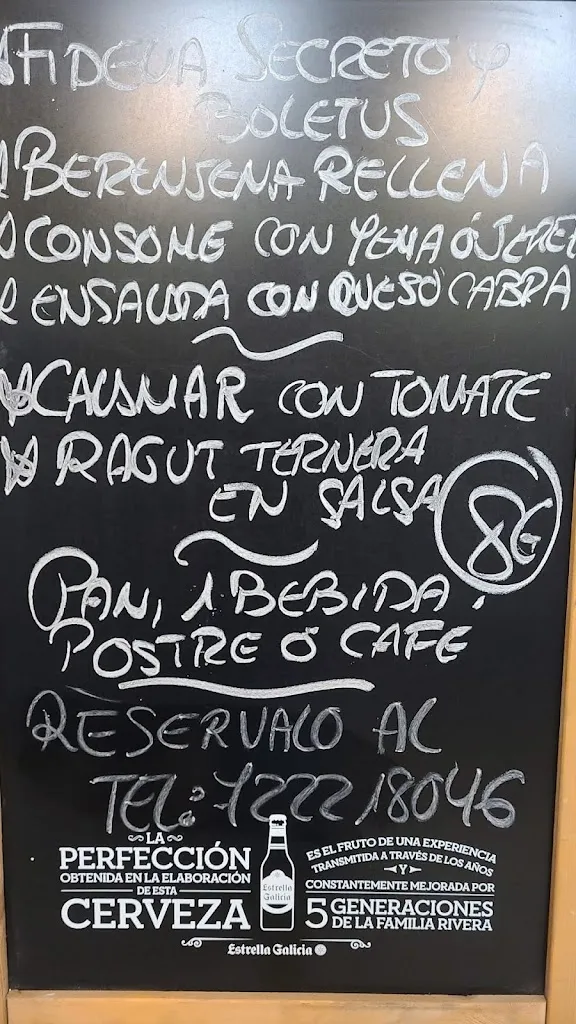 FIDEUA SECRETO Y
BOLETUS
BERENJENA RELLENA
CONSOME CON YEMA Ó JEREZ
ENSALADA CON QUESO CABRA
CALAMAR CON TOMATE
RAGUT TERNERA
EN SALSA
8€
PAN, 1 BEBIDA,
POSTRE O CAFE
RESERVALO AL
TEL: 722218046
LA
PERFECCIÓN
OBTENIDA EN LA ELABORACIÓN
DE ESTA
CERVEZA
Estrella
Galicia
ES EL FRUTO DE UNA EXPERIENCIA
TRANSMITIDA A TRAVÉS DE LOS AÑOS
Y
CONSTANTEMENTE MEJORADA POR
5 GENERACIONES
DE LA FAMILIA RIVERA
Estrella Galicia